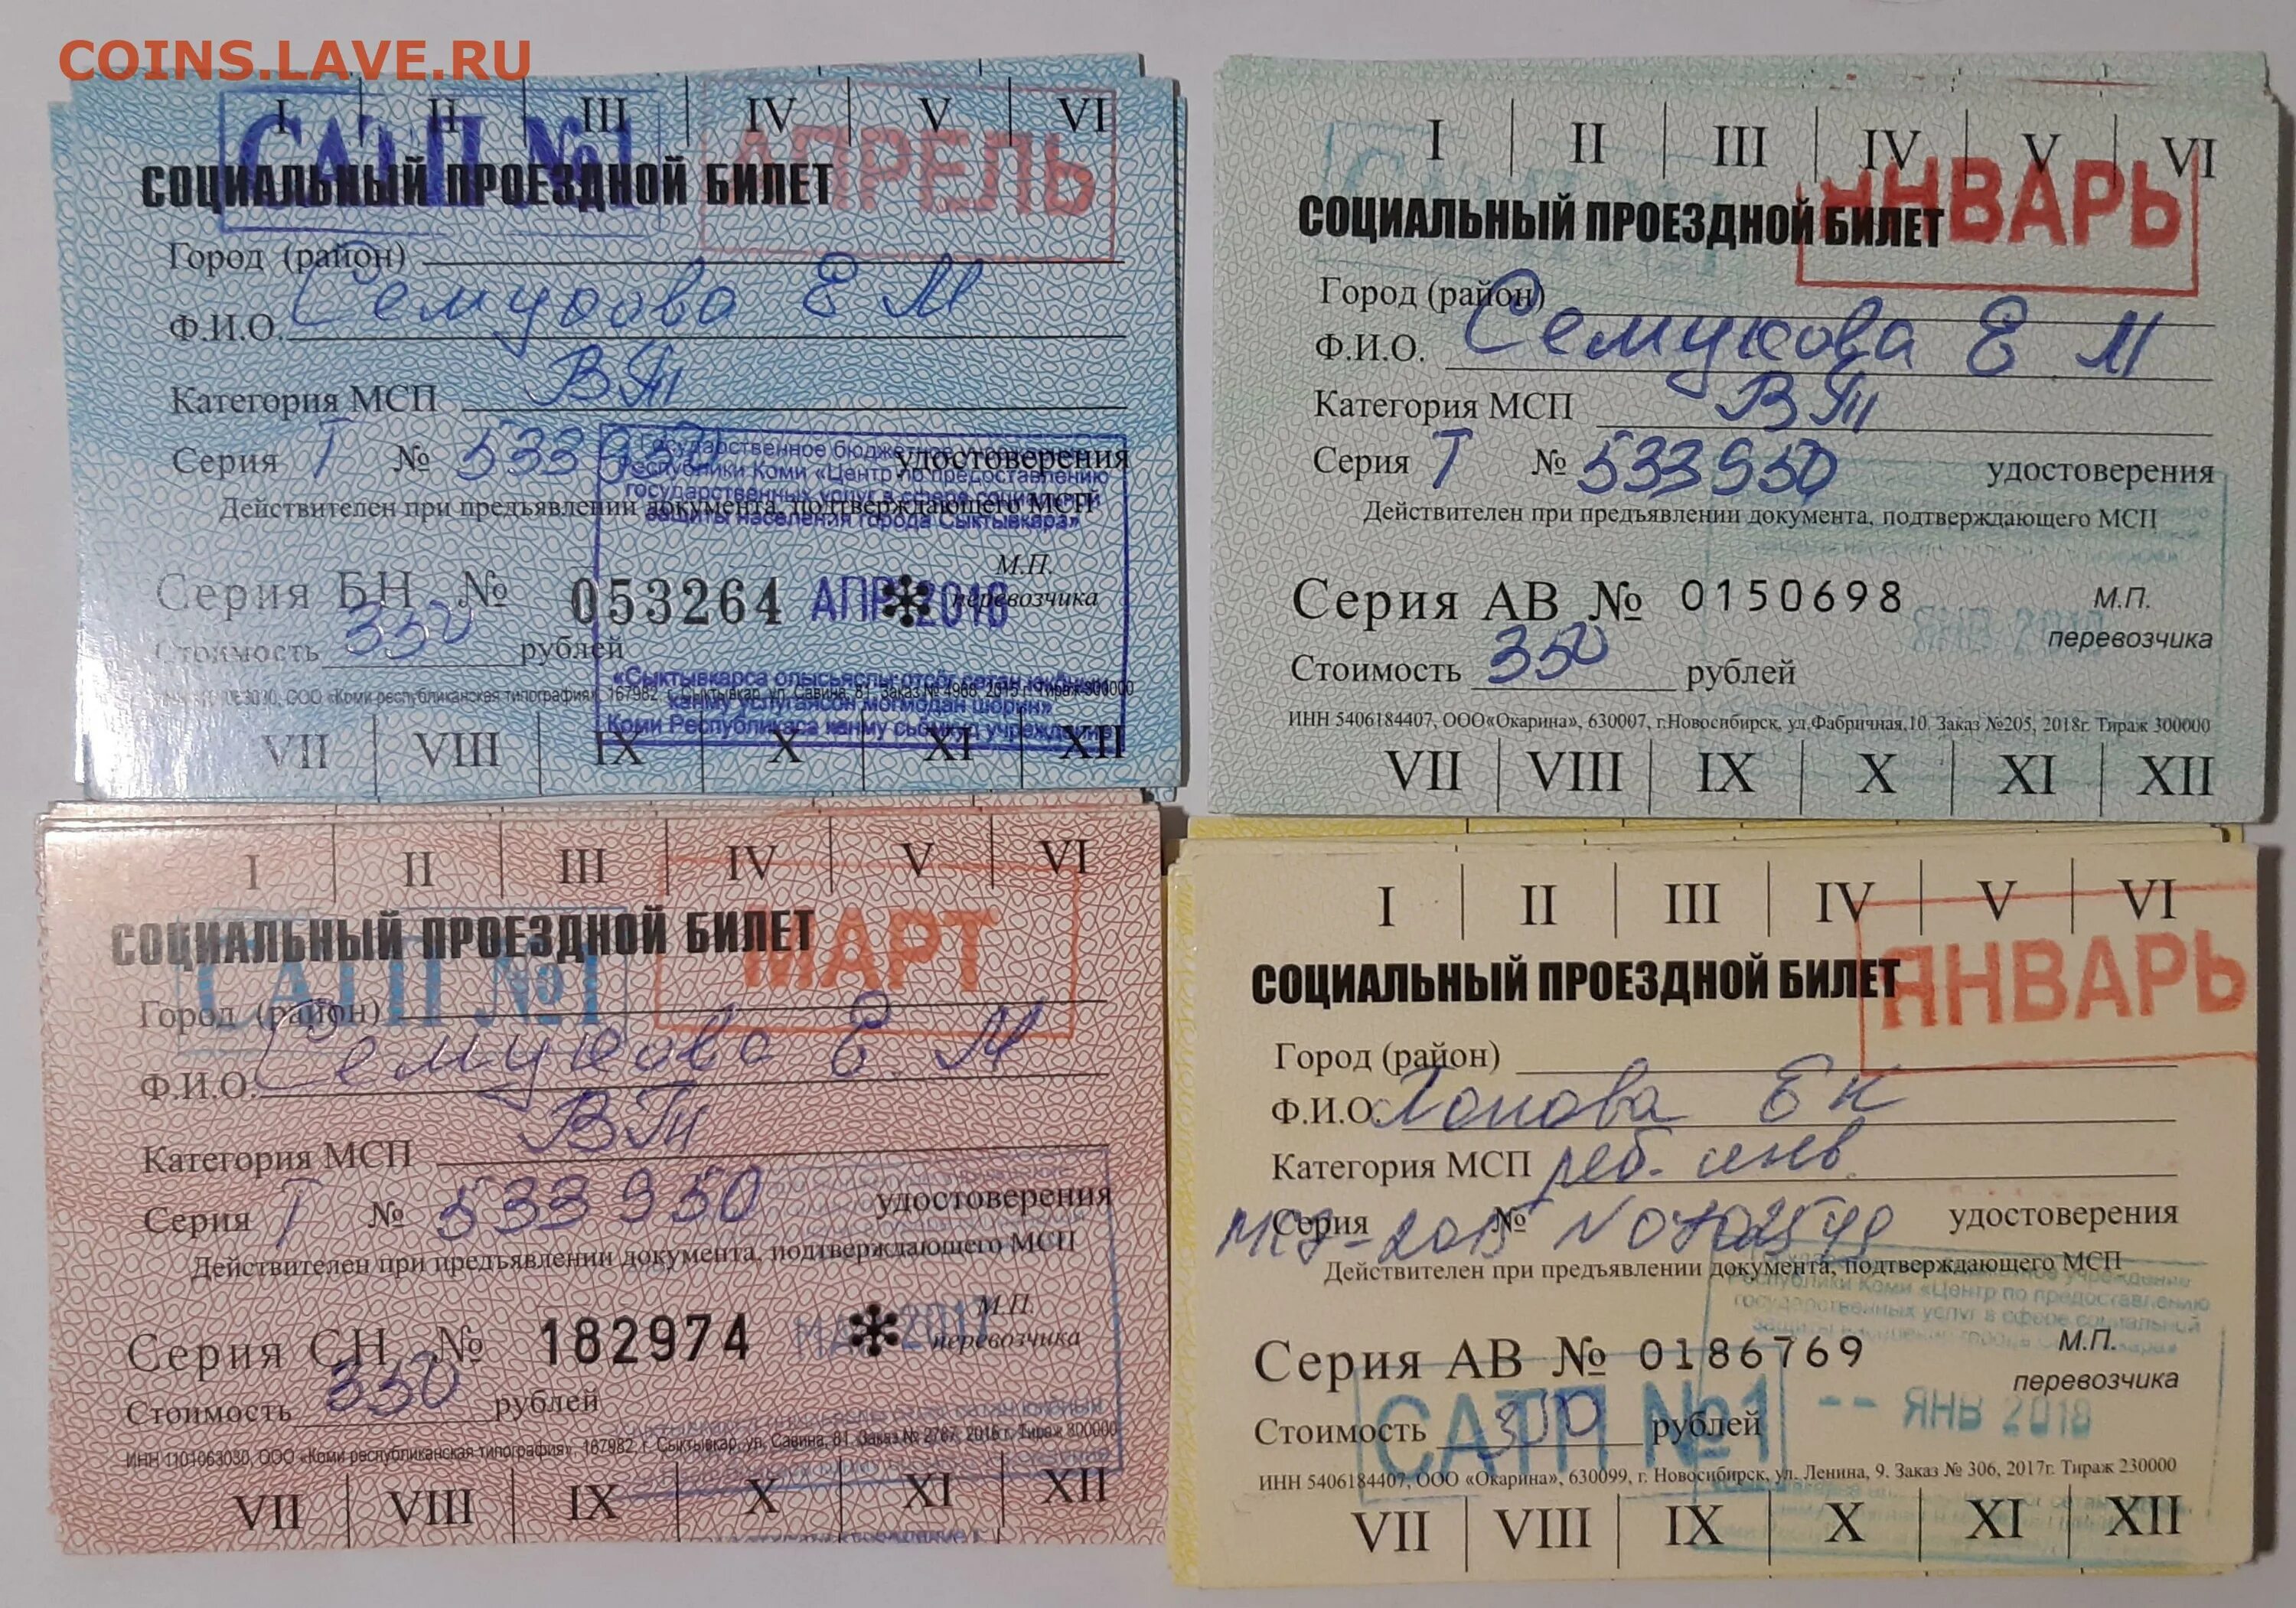 COINS.LAVE.RU
I II III IV V VI
САТП №1
АПРЕЛЬ
СОЦИАЛЬНЫЙ ПРОЕЗДНОЙ БИЛЕТ
Город (район)
Ф.И.О. Семукова Е М
Категория МСП ВТт
Серия Т № 533950 удостоверения
Действителен при предъявлении документа, подтверждающего МСП
Государственное бюджетное
Республики Коми «Центр по предоставлению
государственных услуг в сфере социальной
защиты населения города Сыктывкара»
М.П.
Серия БН № 053264 перевозчика
АПР 2016
Стоимость 350 рублей
ООО «Коми республиканская типография», 167982, г. Сыктывкар, ул. Савина, 81. Заказ № 4966, 2015 г. Тираж 300000
VII VIII IX X XI XII
I II III IV V VI
ЯНВАРЬ
СОЦИАЛЬНЫЙ ПРОЕЗДНОЙ БИЛЕТ
Город (район)
Ф.И.О. Семукова Е М
Категория МСП ВТт
Серия Т № 533950 удостоверения
Действителен при предъявлении документа, подтверждающего МСП
Серия АВ № 0150698 М.П.
перевозчика
Стоимость 350 рублей
ИНН 5406184407, ООО«Окарина», 630007, г.Новосибирск, ул.Фабричная,10. Заказ №205, 2018г. Тираж 300000
VII VIII IX X XI XII
I II III IV V VI
МАРТ
СОЦИАЛЬНЫЙ ПРОЕЗДНОЙ БИЛЕТ
САТП №1
Город (район)
Ф.И.О. Семукова Е М
Категория МСП ВТт
Серия Т № 533950 удостоверения
Действителен при предъявлении документа, подтверждающего МСП
М.П.
Серия СН № 182974 перевозчика
2017
Стоимость 350 рублей
ИНН 1101063030, ООО «Коми республиканская типография», 167982, г. Сыктывкар, ул. Савина, 81. Заказ № 2767, 2016 г. Тираж 300000
VII VIII IX X XI XII
I II III IV V VI
ЯНВАРЬ
СОЦИАЛЬНЫЙ ПРОЕЗДНОЙ БИЛЕТ
Город (район)
Ф.И.О. Попова Е К
Категория МСП реб. инв.
Серия № удостоверения
Действителен при предъявлении документа, подтверждающего МСП
Республики Коми «Центр по предоставлению
государственных услуг в сфере социальной
Серия АВ № 0186769 М.П.
перевозчика
САТП №1
ЯНВ 2018
Стоимость 350 рублей
ИНН 5406184407, ООО «Окарина», 630099, г. Новосибирск, ул. Ленина, 9. Заказ № 306, 2017г. Тираж 230000
VII VIII IX X XI XII